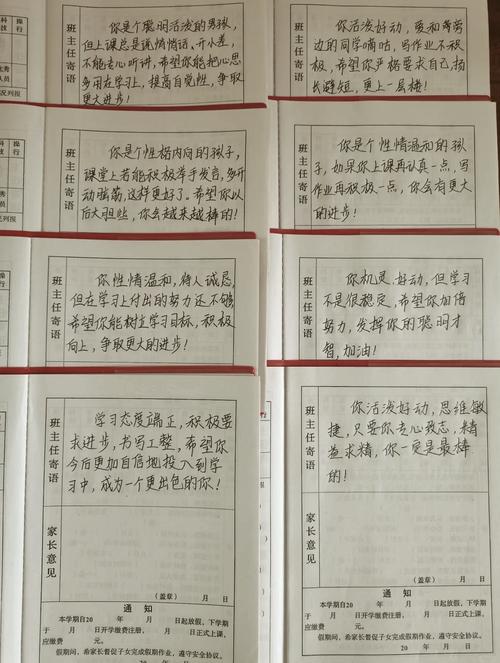 科技
操行
优秀
队员
况列报
班主任寄语
你是个聪明活泼的男孩,
但上课总是说悄悄话、开小差,
不能专心听讲,希望你能把心思
多用在学习上,提高自觉性,争取
更大进步!
班主任寄语
你活泼好动,爱和旁
边的同学嘀咕,写作业不积
极,希望你严格要求自己,扬
长避短,更上一层楼!
班主任寄语
你是个性格内向的孩子,
课堂上若能积极举手发言,多开
动脑筋,这样更好了。希望你以
后大胆些,你会越来越棒的!
班主任寄语
你是个性情温和的孩
子,如果你上课再认真一点,写
作业再积极一点,你会有更大
的进步!
班主任寄语
你性情温和,待人诚恳,
但在学习上付出的努力还不够
希望你能树立学习目标,积极
向上,争取更大的进步!
班主任寄语
你机灵、好动,但学习
不是很稳定,希望你加倍
努力,发挥你的聪明才
智,加油!
班主任寄语
学习态度端正,积极要
求进步,书写工整,希望你
今后更加自信地投入到学
习中,成为一个更出色的你!
家长意见
(盖章) 月 日
通知
本学期自20 年 月 日起放假,下学期
于 月 日开学缴费注册, 月 日正式上课,
应缴费 元。
假期间,希家长督促子女完成假期作业,遵守安全协议。
20 年 月 日
班主任寄语
你活泼好动,思维敏
捷,只要你专心致志,精
益求精,你一定是最棒
的!
家长意见
(盖章) 月 日
通知
本学期自20 年 月 日起放假,下学期
于 月 日开学缴费注册, 月 日正式上课,
应缴费 元。
假期间,希家长督促子女完成假期作业,遵守安全协议。
20 年 月 日